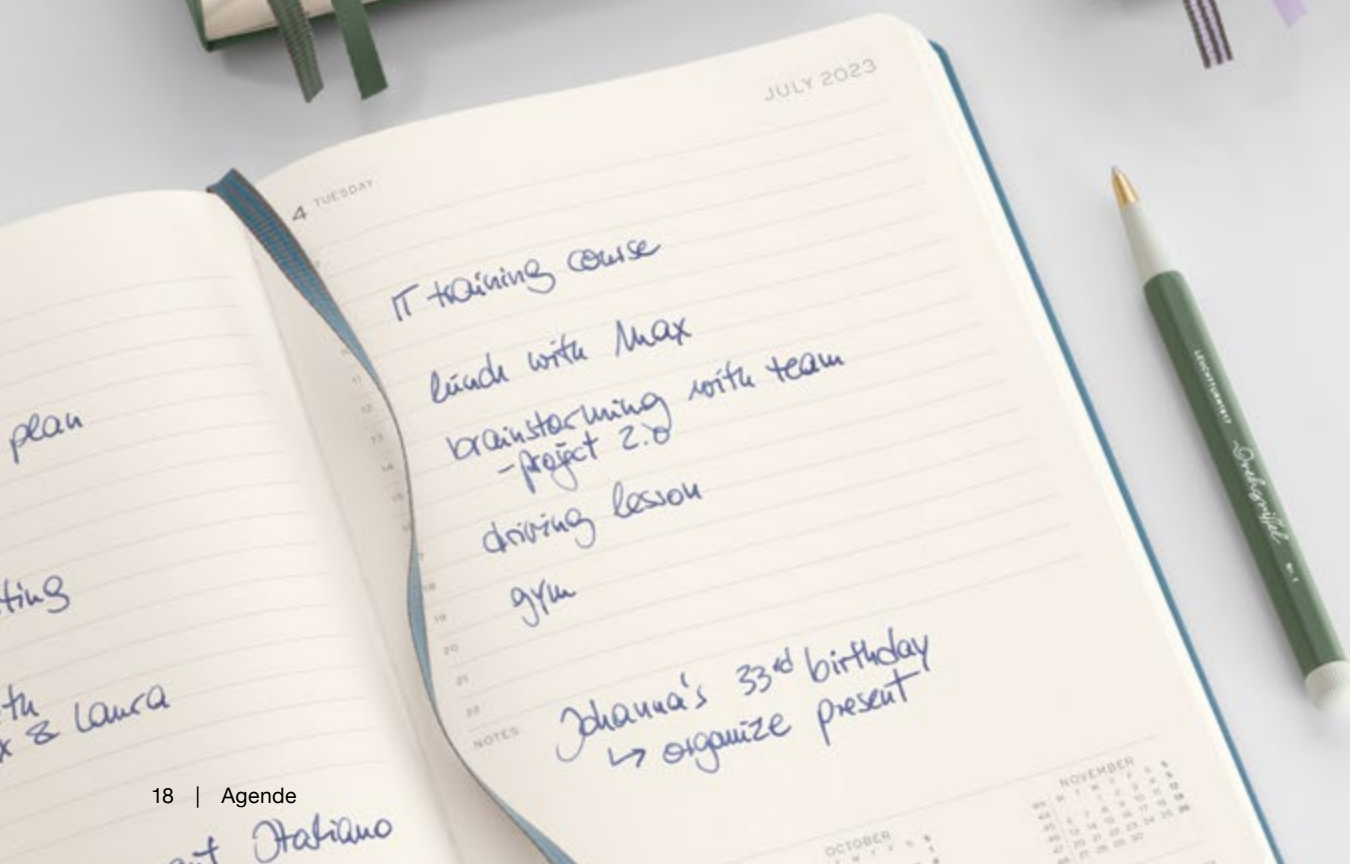 JULY 2023
4 TUESDAY
IT training course
lunch with Max
brainstorming with team
-project 2.0
driving lesson
gym
11
12
13
14
15
18
19
20
21
22
NOTES
Johanna's 33rd birthday
↳ organize present
plan
ting
th
x & Laura
Italiano
18 | Agende
OCTOBER
NOVEMBER
LEUCHTTURM1917
Drehgriffel
Nr. 1